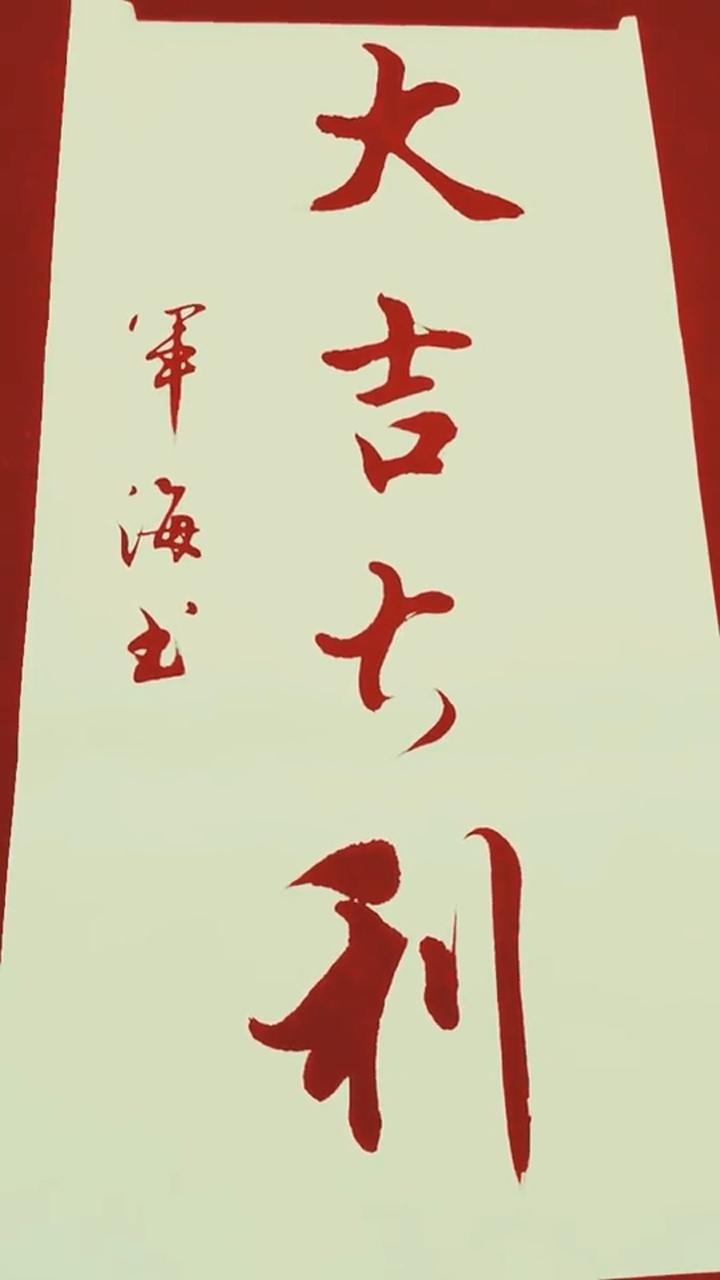 大吉大利
軍海书